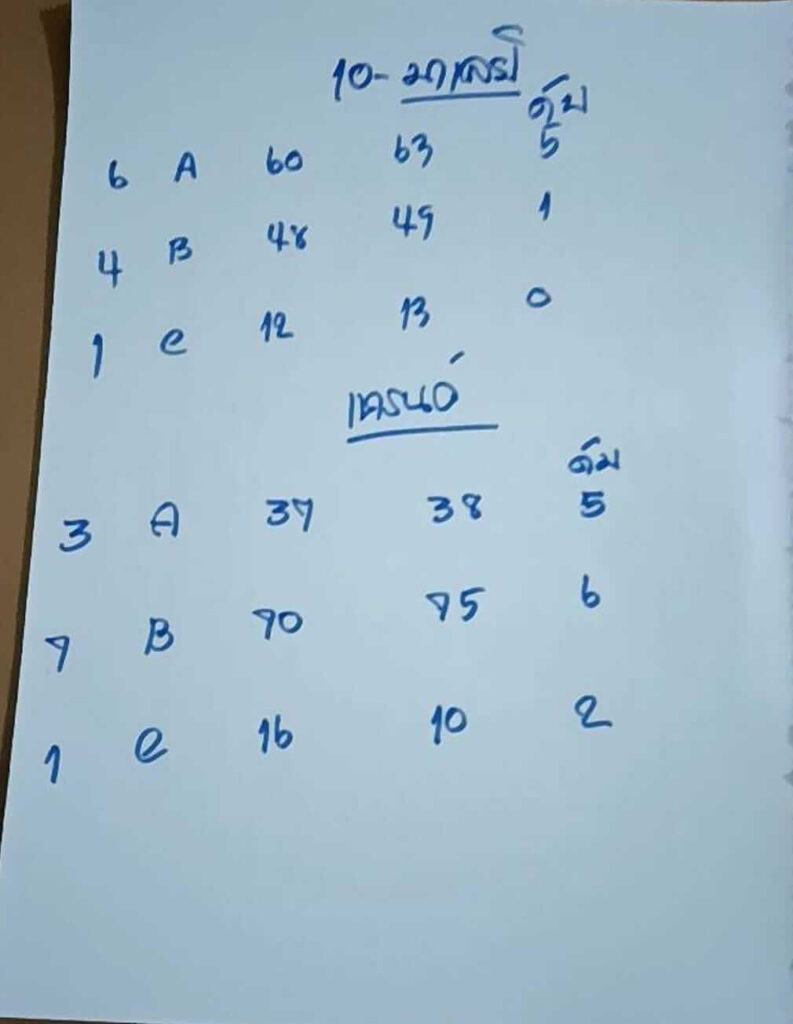 10- มาเลย์
ดัม
6 A 60 63 5
4 B 48 49 1
1 C 12 13 0
เครนอ์
ดัม
3 A 37 38 5
7 B 70 75 6
1 C 16 10 2